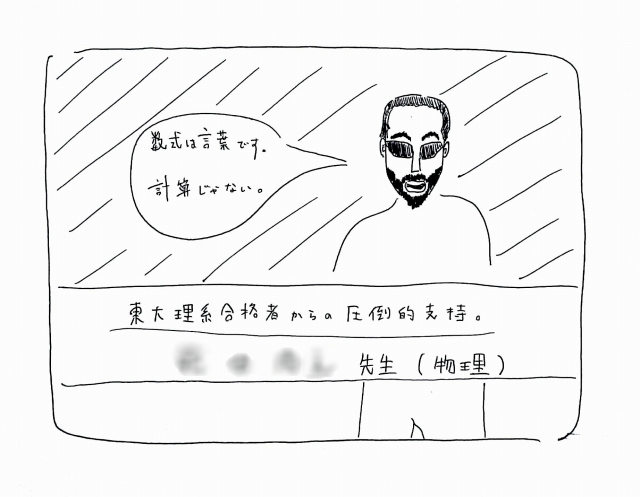 数式は言葉です。
計算じゃない。
東大理系合格者からの圧倒的支持。
先生（物理）